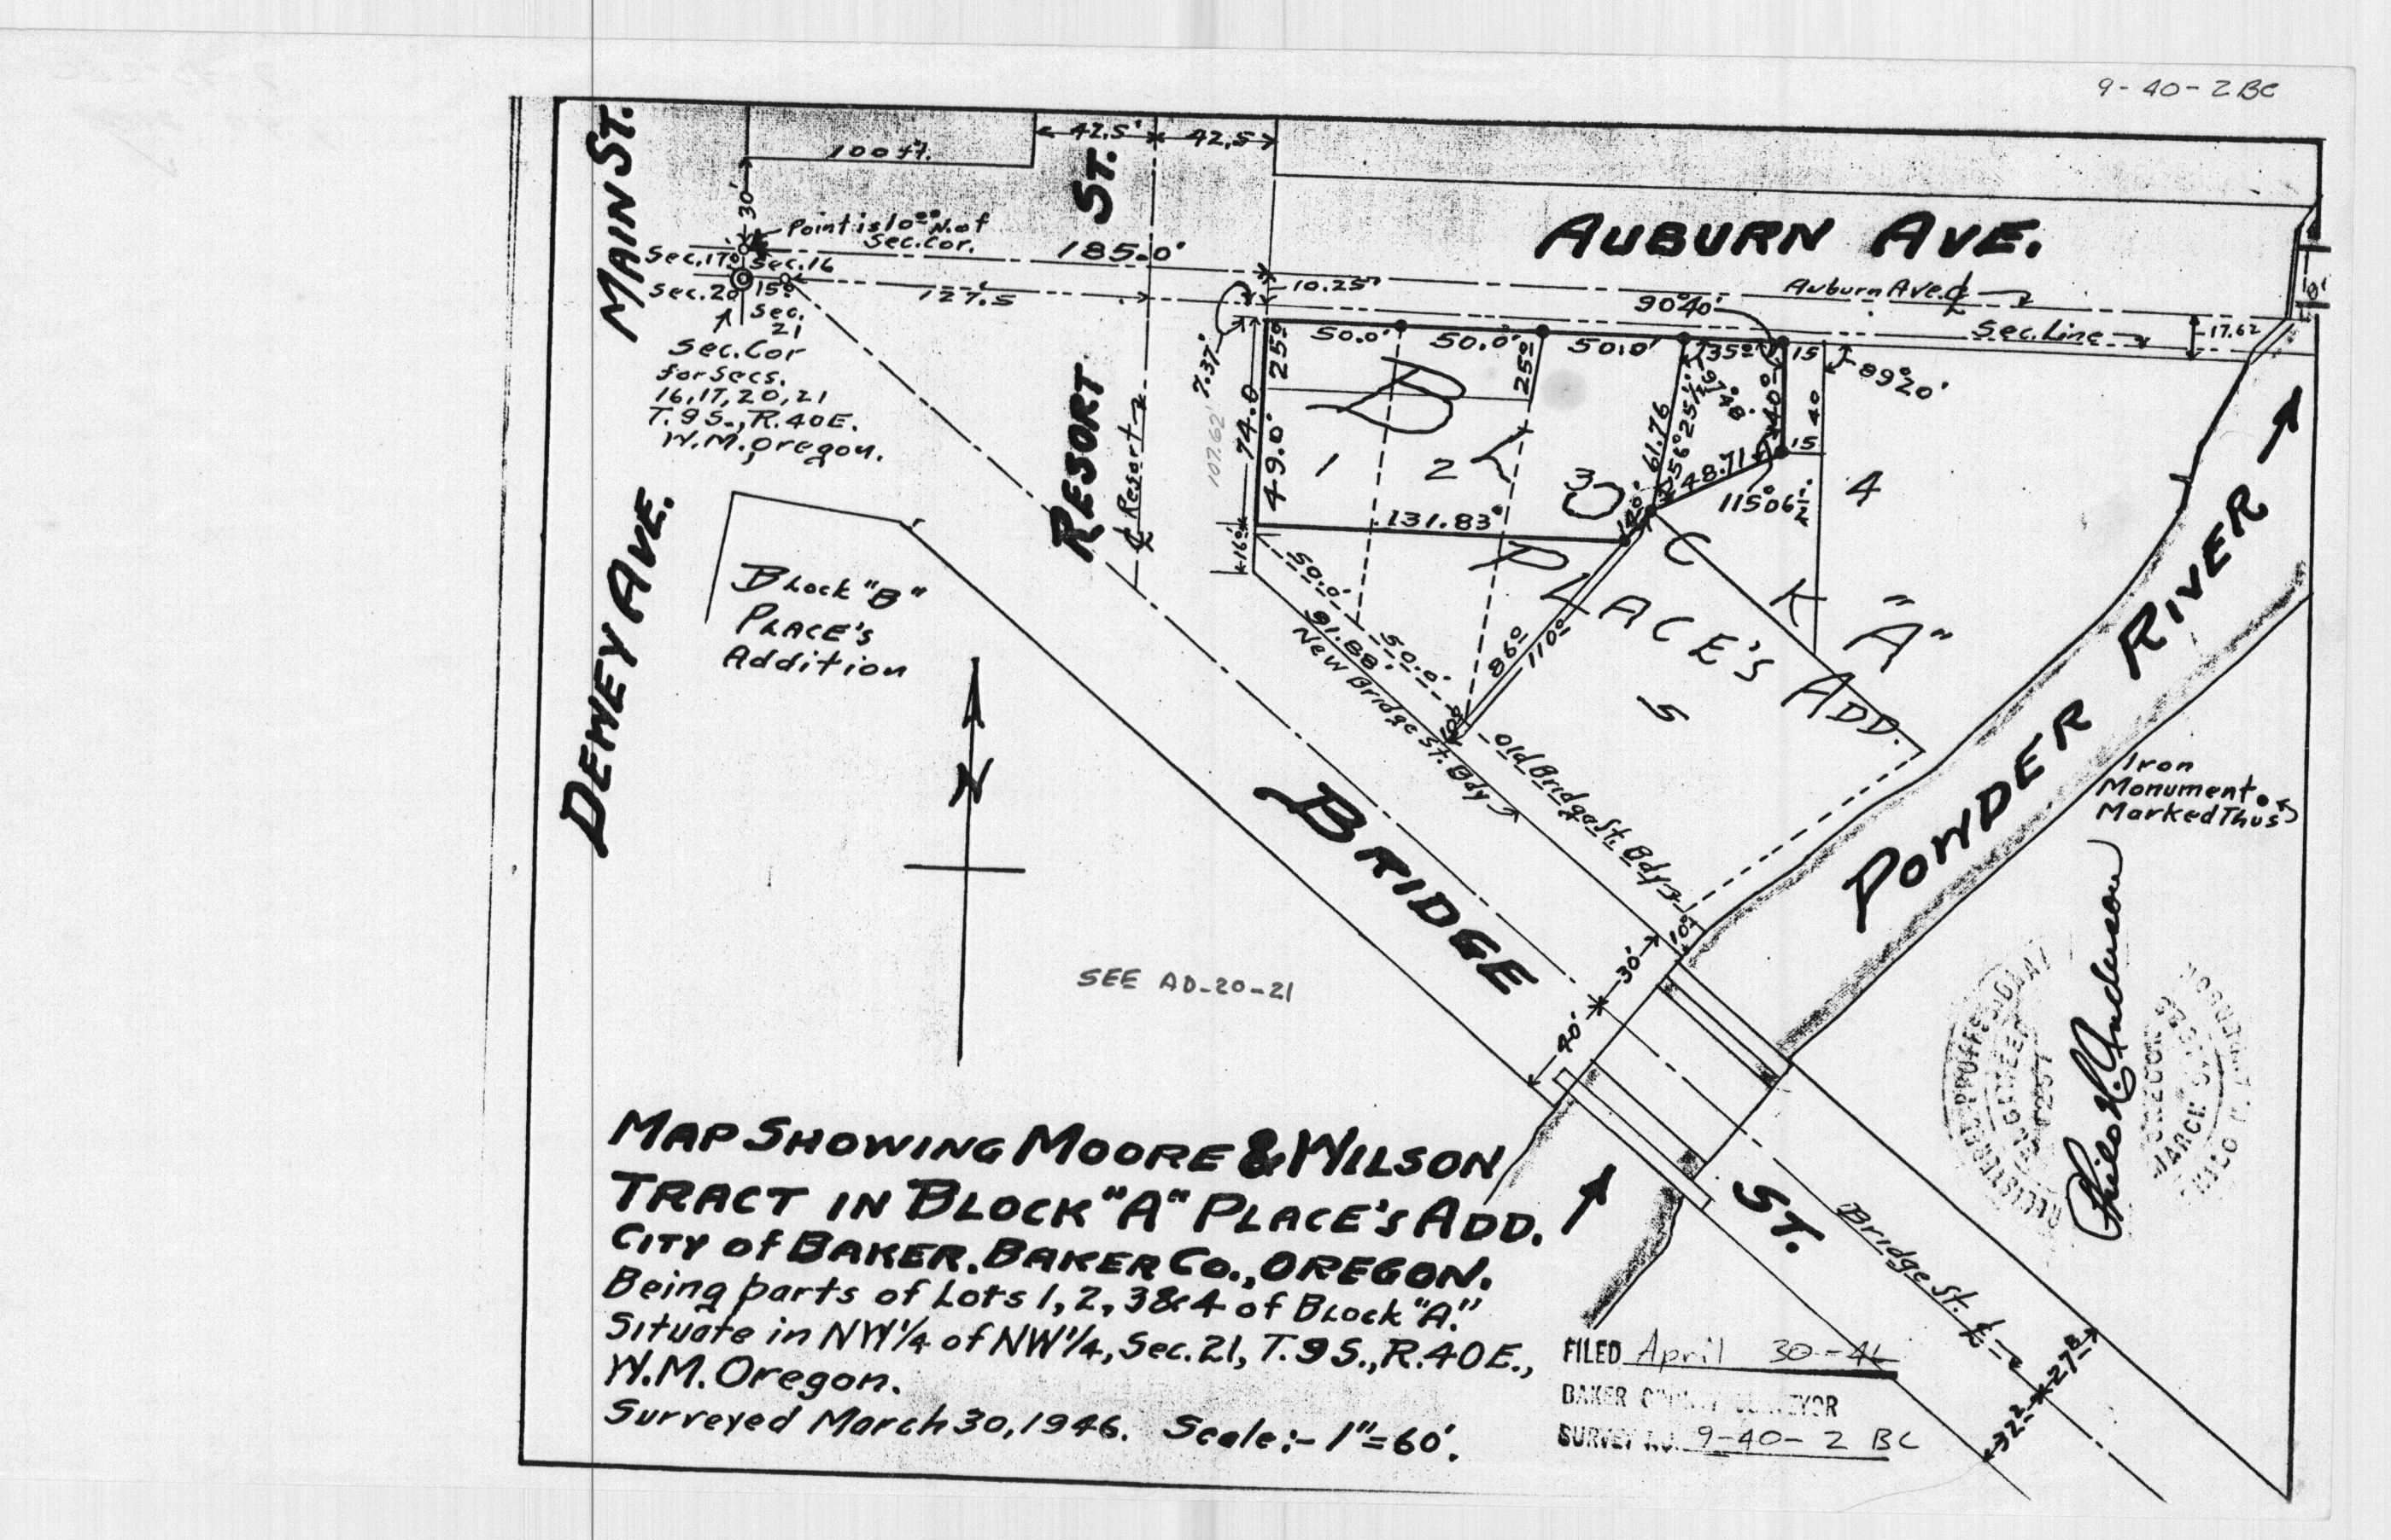 9-40-2 BC
MAIN ST.
42.5'
42.5
100 ft.
30'
Point is 10°° N. of
Sec. Cor.
Sec. 17
Sec. 16
Sec. 20
15°
Sec.
21
185.0'
127.5
Sec. Cor
for Secs.
16, 17, 20, 21
T. 9 S., R. 40 E.
W.M., Oregon.
RESORT ST.
℄ Resort
AUBURN AVE.
Auburn Ave. ℄
10.25'
90°40'
Sec. Line
18'
17.62
7.37'
107.62'
74.0
25°
49.0'
16°
50.0'
50.0'
50.0'
25°
35°
15
89°20'
40°
40
15
61.76
56°25½'
67°48'
48.71
115°06½'
14°
131.83°
1
2
3
4
5
BLOCK "A"
PLACE'S ADD.
50.0'
50.0'
91.88'
86°
110°
10°
New Bridge St. Bdy
Old Bridge St. Bdy
DEWEY AVE.
Block "B"
PLACE'S
Addition
N
POWDER RIVER
Iron
Monument
Marked Thus
BRIDGE ST.
10°
30'
40'
Bridge St. ℄
27⁸
32²
SEE AD-20-21
Philo H. Anderson
MAP SHOWING MOORE & WILSON
TRACT IN BLOCK "A" PLACE'S ADD.
CITY of BAKER. BAKER CO., OREGON.
Being parts of Lots 1, 2, 3 & 4 of Block "A."
Situate in NW¼ of NW¼, Sec. 21, T. 9 S., R. 40 E.,
W.M. Oregon.
Surveyed March 30, 1946. Scale:- 1"=60'.
FILED April 30-46
BAKER COUNTY SURVEYOR
SURVEY NO. 9-40-2 BC